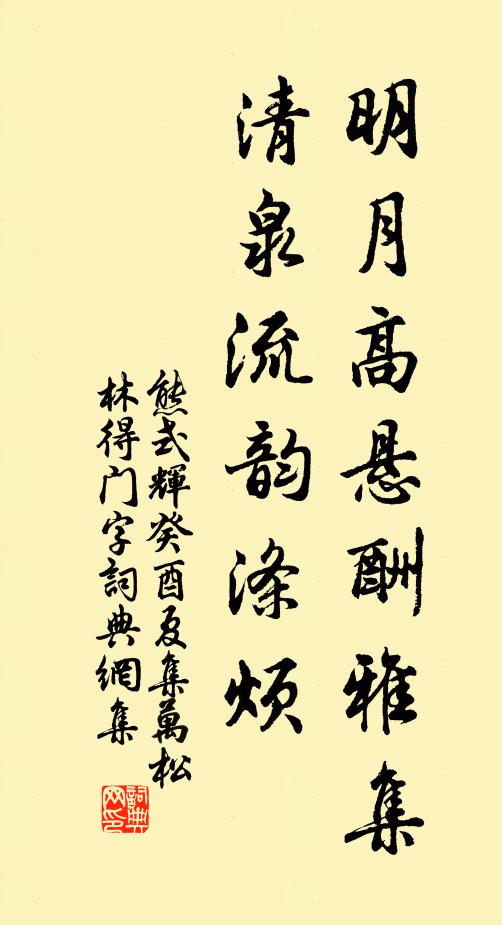 明月高悬酬雅集
清泉流韵涤烦
熊式輝癸酉夏集萬松
林得门字詞典網集
詞典
网印